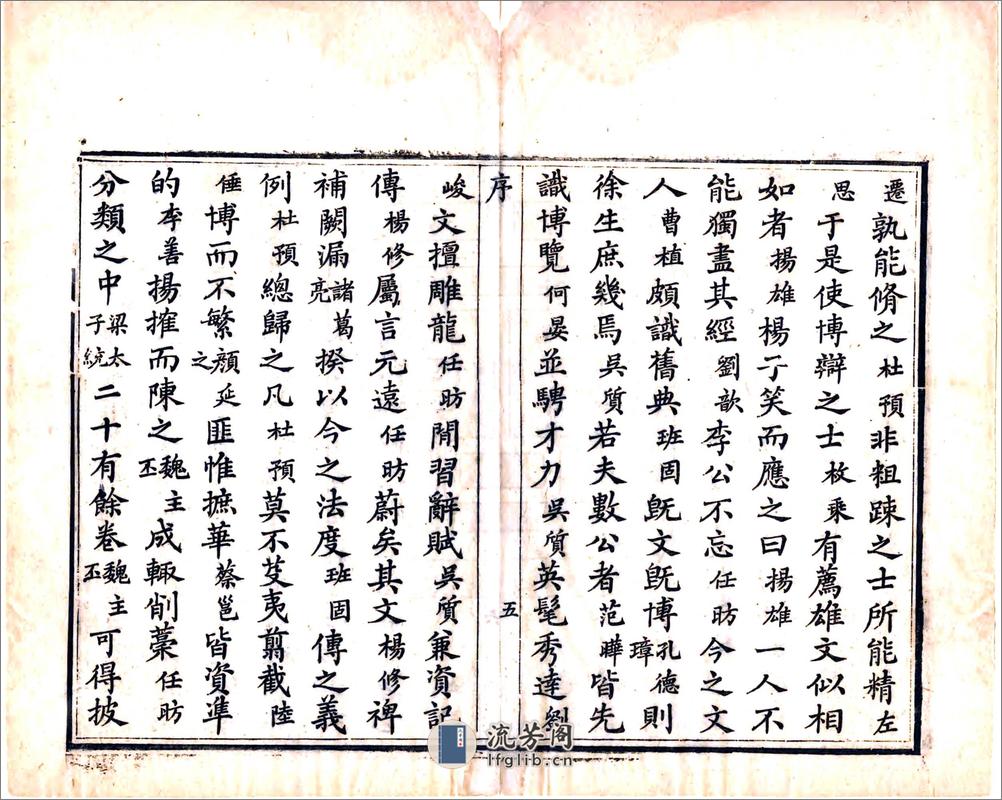 遷孰能脩之杜預非粗疎之士所能精左
思于是使博辯之士枚乗有薦雄文似相
如者揚雄楊子笑而應之曰揚雄一人不
能獨盡其經劉歆李公不忘任昉今之文
人曹植頗識舊典班固旣文旣博孔德璋則
徐生庶幾焉吳質若夫數公者范曄皆先
識博覽何晏並騁才力吳質英髦秀達劉
序 五
峻文擅雕龍任昉閒習辭賦吳質兼資記
傳楊修屬言元遠任昉蔚矣其文楊修禆
補闕漏諸葛亮揆以今之法度班固傳之義
例杜預總歸之凡杜預莫不芟夷翦截陸
倕博而不繁顏延之匪惟摭華蔡邕皆資準
的李善揚搉而陳之魏主丕成輙削藁任昉
分類之中梁太子統二十有餘卷魏主丕可得披
流芳阁
lfglib.cn